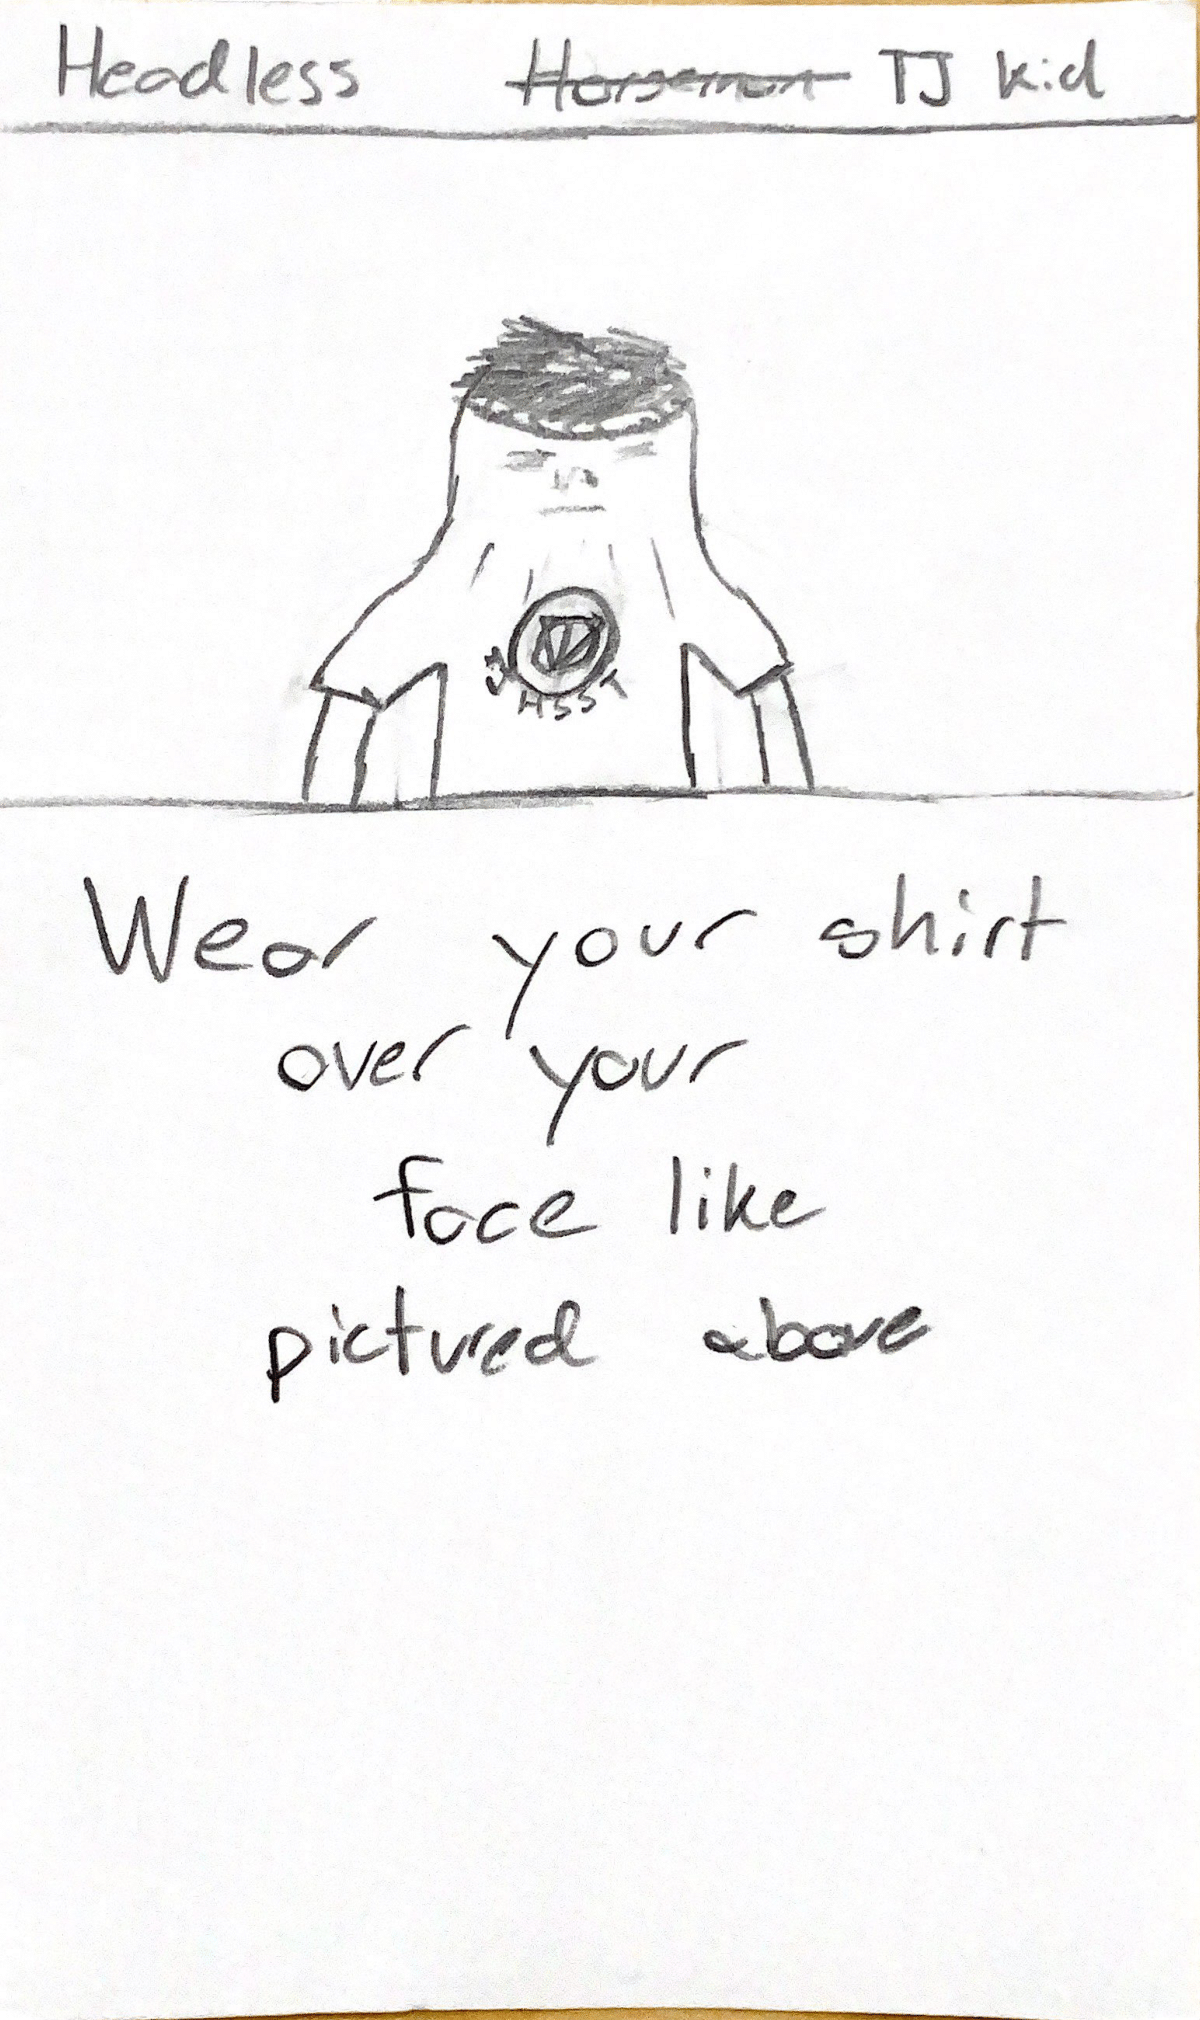 Headless Horseman TJ kid
TJHSST
Wear your shirt
over your
face like
pictured above